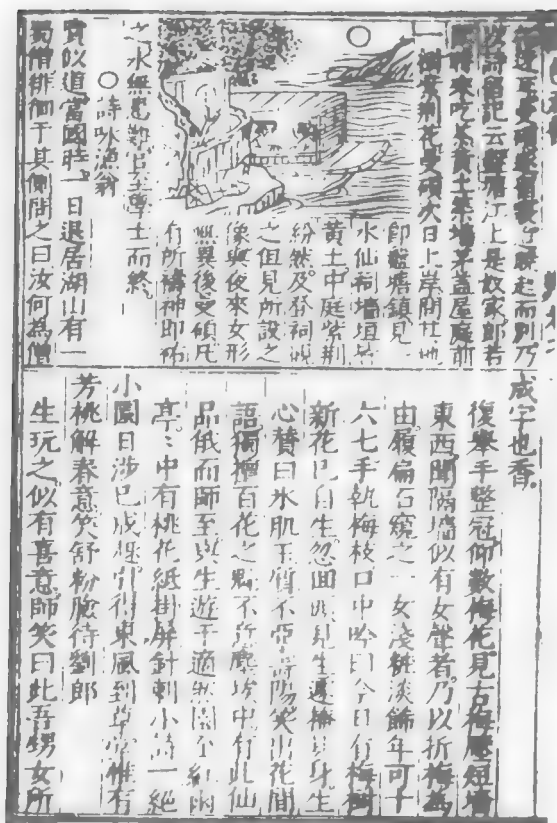 聯起而別乃
以詩留記云盤塘江上是奴家郎若
閑時來吃茶黃土築墻茅蓋屋庭前
一樹紫荊花更碩次日上岸問其地
即盤塘鎮見
水仙祠墻垣皆
黃土中庭紫荊
紛然及登祠
之但見所設之
像與夜來女形
無異後更碩凡
有所禱神即祐
之水無患歷官至學士而終
○詩咏漁翁
賈似道當國時一日退居湖山有一
蜀僧徘徊于其側問之曰汝何為僧
咸字也香
復舉手整冠仰數梅花見古梅壓短墻
東西聞隔墻似有女聲者乃以折梅為
由履扁石窺之一女淺粧淡飾年可十
六七手執梅枝口中吟曰今日有梅樹
新花已自生忽回眸見生遽掩其身生
心賛曰氷肌玉質不亞壽陽笑出花間
語獨擅百花之魁不意塵埃中有此仙
品俄而師至與生遊于適然園至紅雨
亭〻中有桃花紙掛屏針刺小詩一絕
小園日涉已成蹊引得東風到草堂惟有
芳桃解春意笑舒粉臉待劉郎
生玩之似有喜意師笑曰此吾甥女所